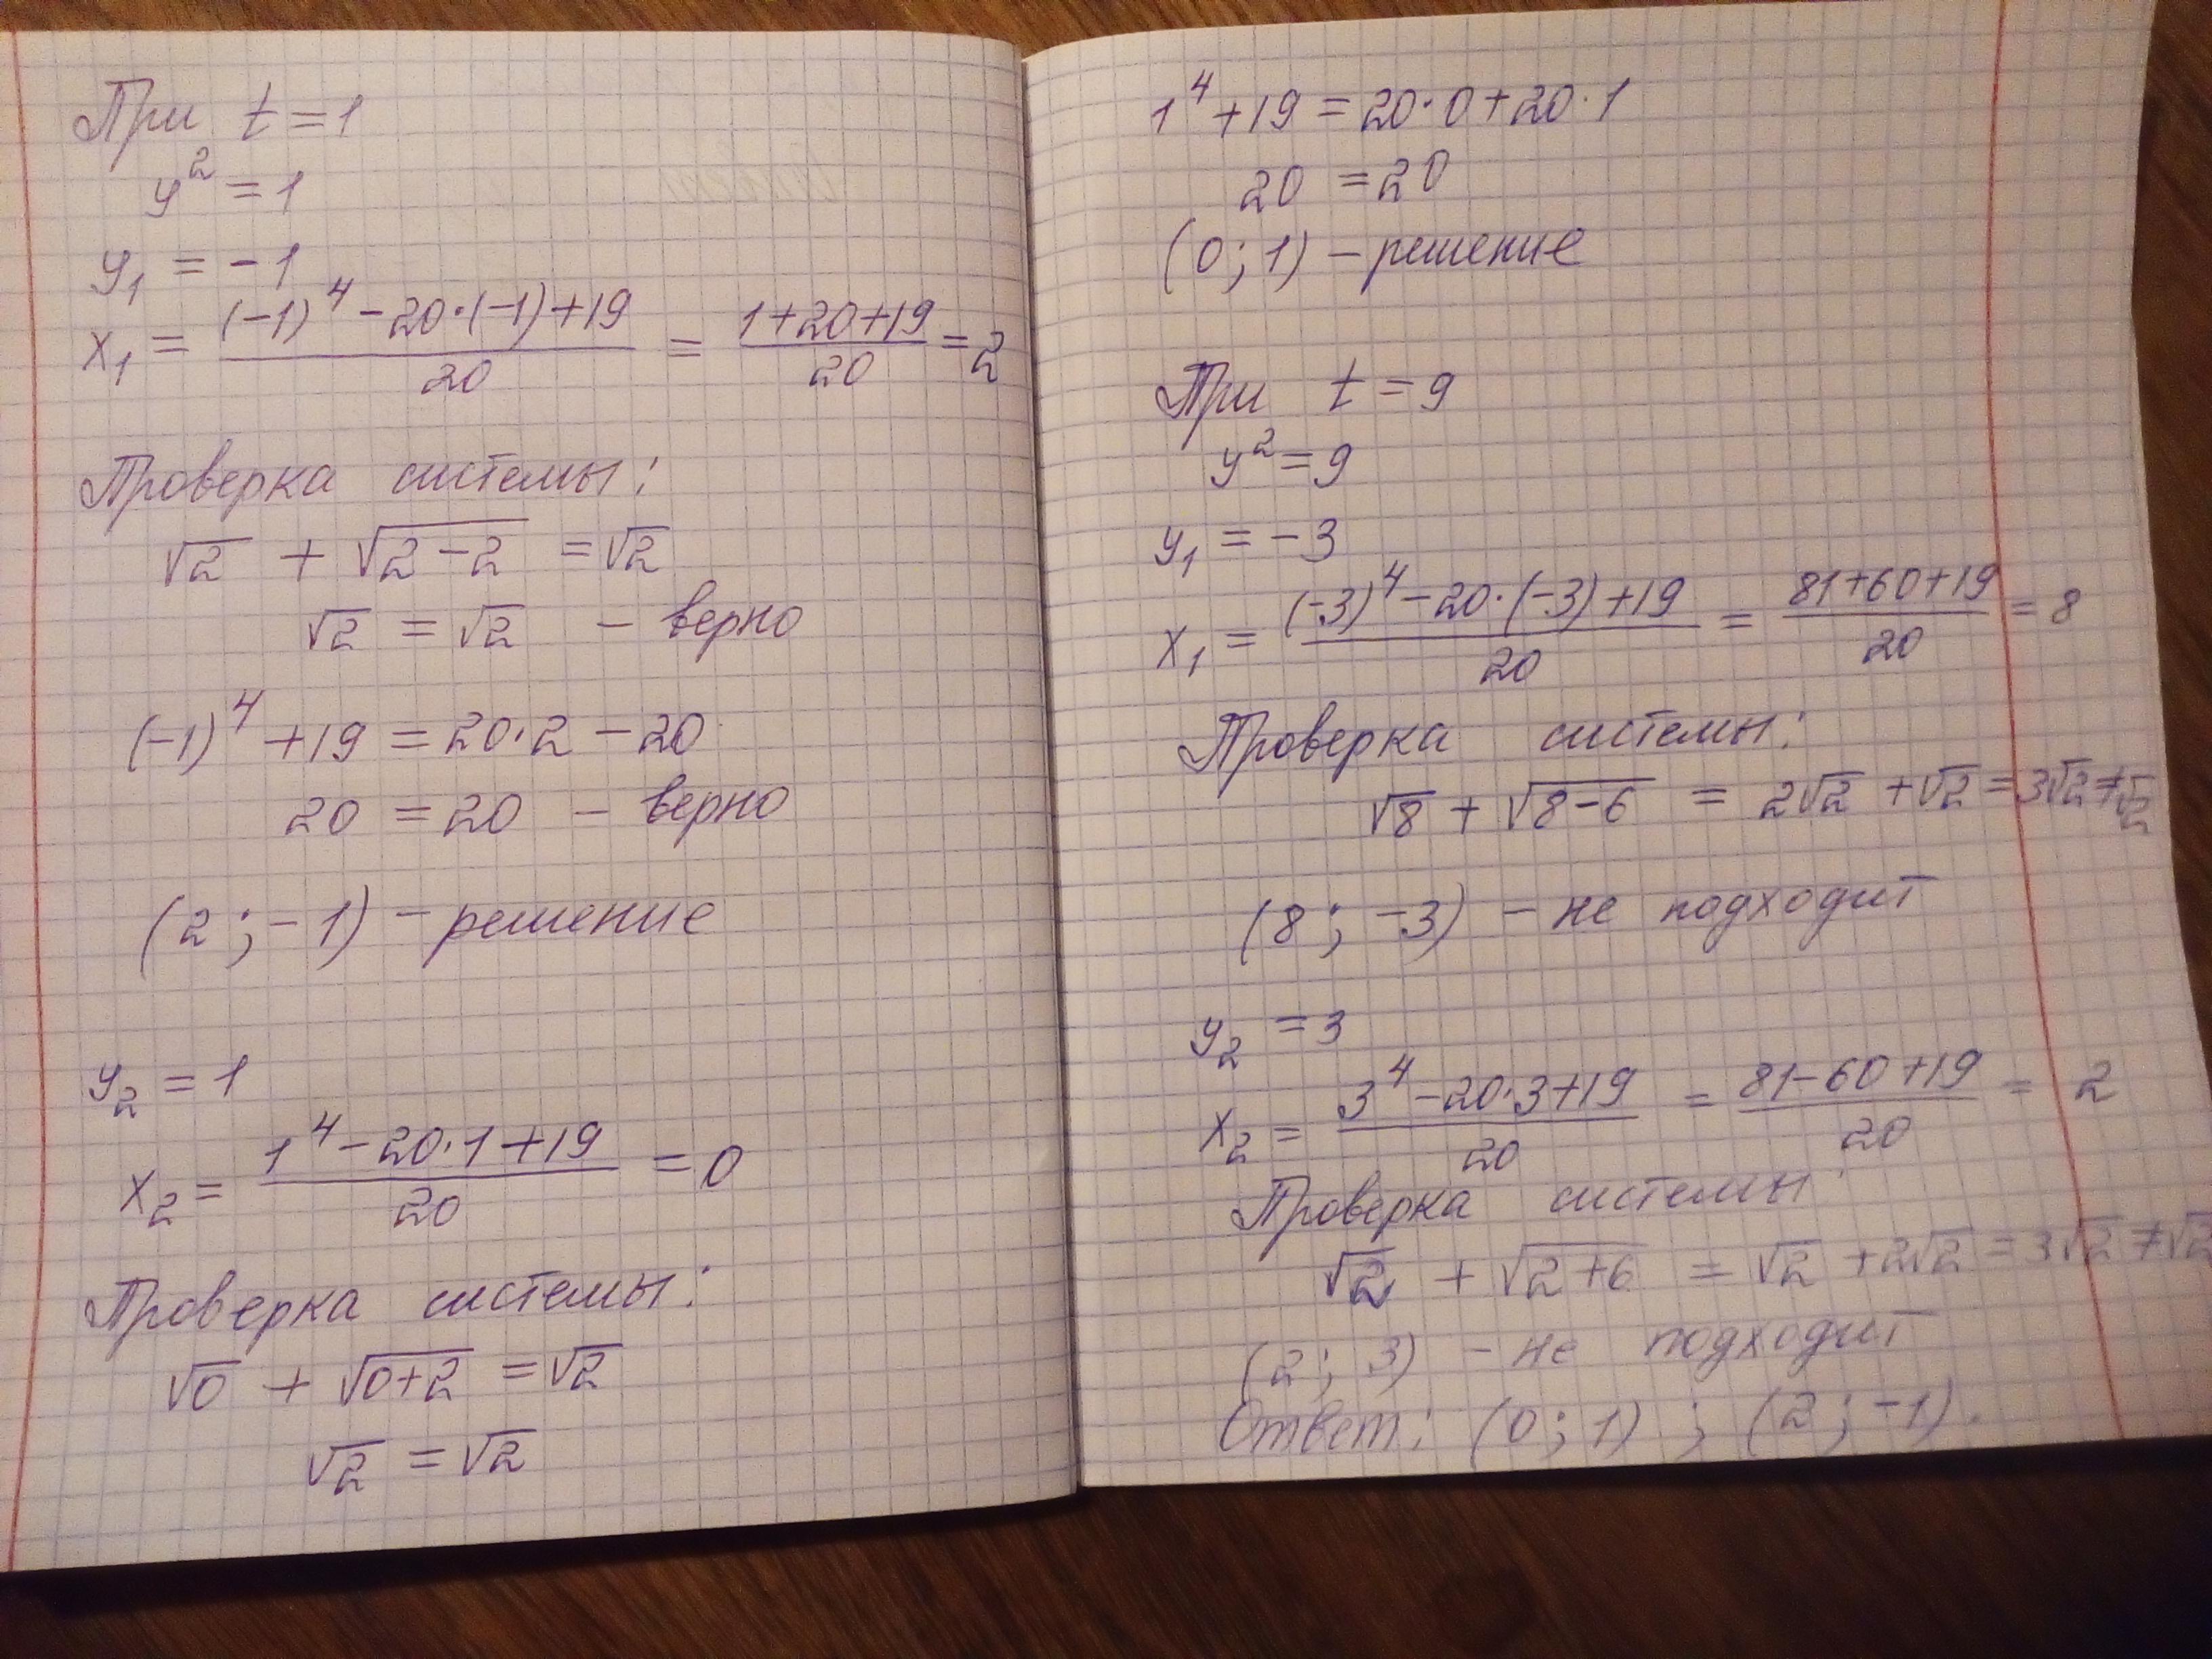 При t = 1
y² = 1
y₁ = -1
x₁ = ((-1)⁴ - 20·(-1) + 19)/20 = (1+20+19)/20 = 2
Проверка системы:
√2 + √(2-2) = √2
√2 = √2 - верно
(-1)⁴ + 19 = 20·2 - 20
20 = 20 - верно
(2; -1) - решение
y₂ = 1
x₂ = (1⁴ - 20·1 + 19)/20 = 0
Проверка системы:
√0 + √(0+2) = √2
√2 = √2
1⁴ + 19 = 20·0 + 20·1
20 = 20
(0; 1) - решение
При t = 9
y² = 9
y₁ = -3
x₁ = ((-3)⁴ - 20·(-3) + 19)/20 = (81+60+19)/20 = 8
Проверка системы:
√8 + √(8-6) = 2√2 + √2 = 3√2 ≠ √2
(8; -3) - не подходит
y₂ = 3
x₂ = (3⁴ - 20·3 + 19)/20 = (81-60+19)/20 = 2
Проверка системы:
√2 + √(2+6) = √2 + 2√2 = 3√2 ≠ √2
(2; 3) - не подходит
Ответ: (0; 1) ; (2; -1).